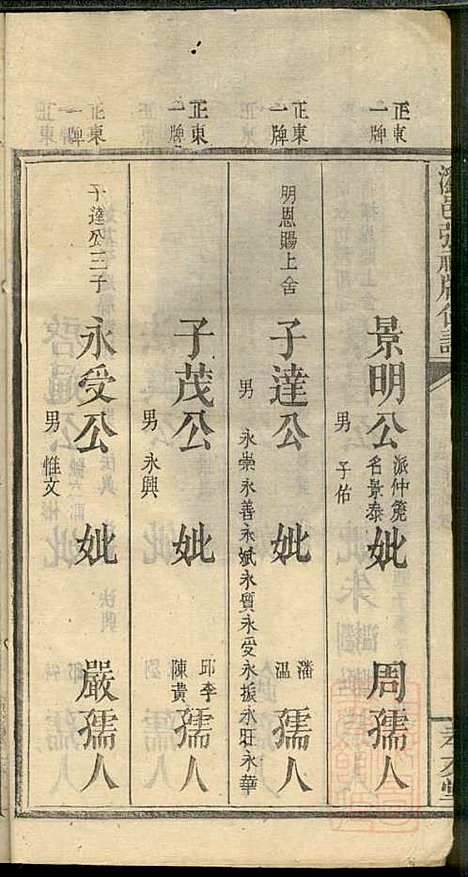 正東
一牌
景明公 派仲篪 名景泰 妣 周孺人
男 子佑
正東
一牌
明恩賜上舍
子達公 妣 潘溫孺人
男 永崇永善永斌永質永受永振永旺永華
正東
二牌
子茂公 妣 邱李陳黃孺人
男 永興
正東
一牌
子達公三子
永受公 妣 嚴孺人
男 惟文